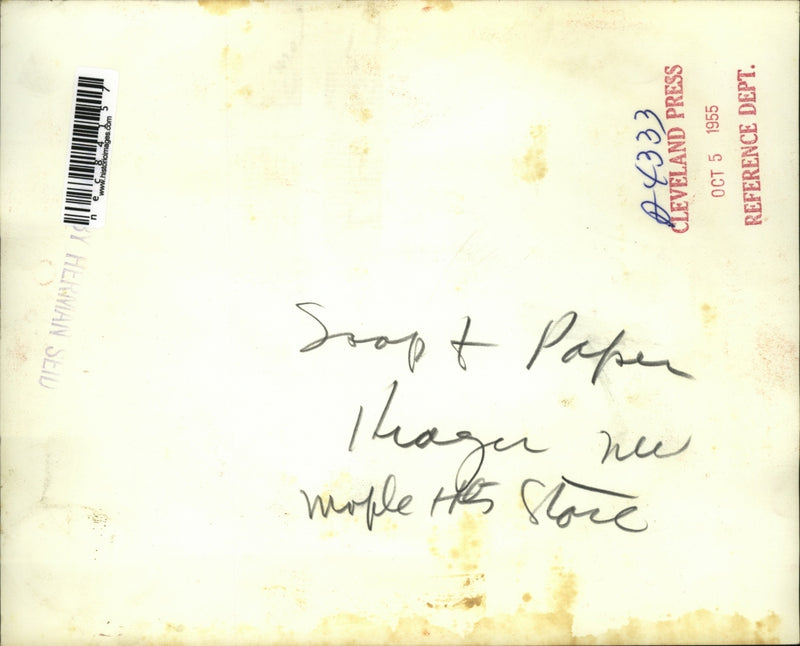 Soap & Paper
Kroger new
Maple Hts Store
D-4333
CLEVELAND PRESS
OCT 5 1955
REFERENCE DEPT.
nec84157
www.historicimages.com
BY HERMAN SEID